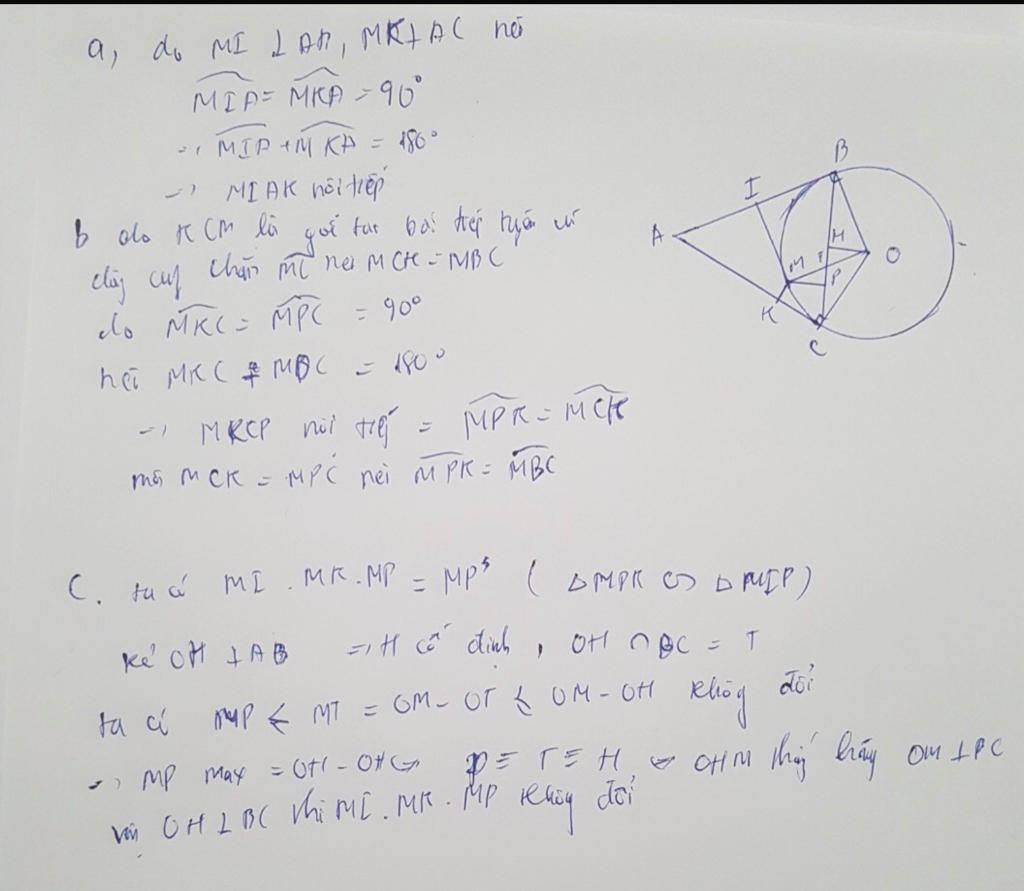 a, do MI ⊥ AB, MK ⊥ AC nên
MIA = MKA = 90°
=> MIA + MKA = 180°
=> MIAK nội tiếp
b do KCM là góc tạo bởi tiếp tuyến và
dây cung chắn MC nên MCK = MBC
do MKC = MPC = 90°
nên MKC + MPC = 180°
=> MKCP nội tiếp = MPK = MCK
mà MCK = MPC nên MPK = MBC
C. ta có MI . MK . MP = MP³ ( Δ MPK ∽ Δ MIP)
Kẻ OH ⊥ AB => H cố định, OH ∩ BC = T
ta có MP ≤ MT = OM - OT ≤ OM - OH không đổi
=> MP max = OH - OH <=> P ≡ T ≡ H <=> OHM thẳng hàng OM ⊥ BC
vậy OH ⊥ BC thì MI . MK . MP không đổi
B
I
A
H
M
T
O
P
K
C